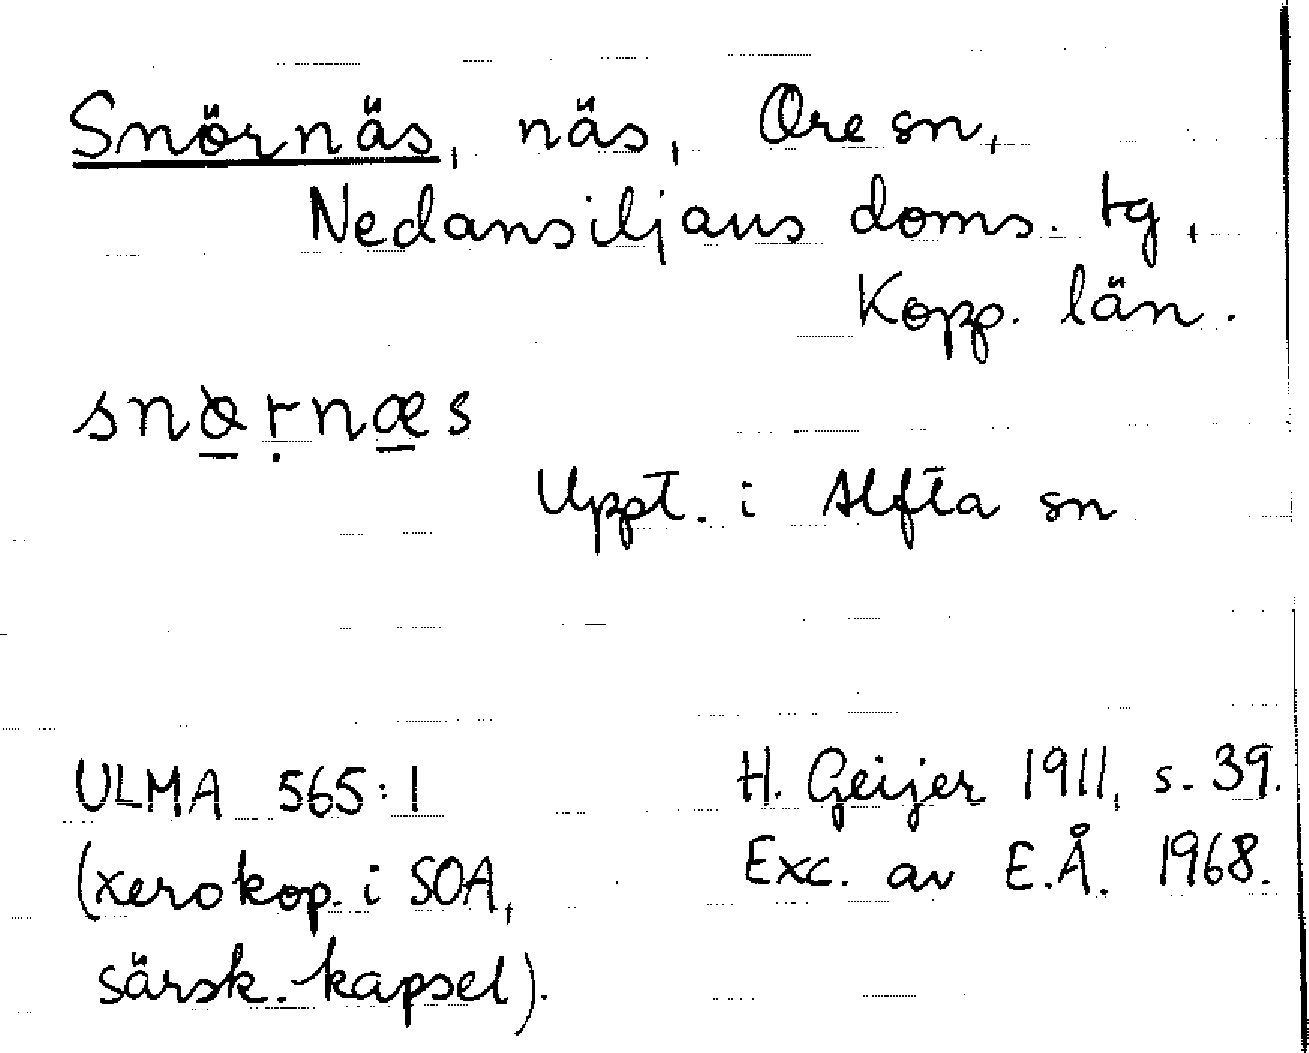 Snörnäs, näs, Ore sn,
Nedansiljans doms. tg,
Kopp. län.
Uppt. i Alfta sn
ULMA 565:1
(xerokop. i SOA,
särsk. kapsel).
H. Geijer 1911, s. 39.
Exc. av E.Å. 1968.